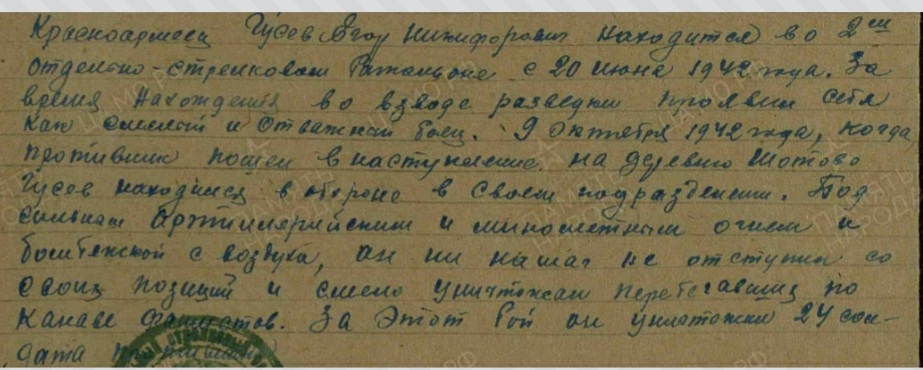 Красноармеец Гусев Егор Никифорович находится во 2ом
отдельно-стрелковом батальоне с 20 июня 1942 года. За
время нахождения во взводе разведки проявил себя
как смелый и отважный боец. 9 октября 1942 года, когда
противник пошел в наступление на деревню Шотово
Гусев находился в обороне в своем подразделении. Под
сильным артиллерийским и минометным огнем и
бомбежкой с воздуха, он ни на шаг не отступил со
своих позиций и смело уничтожал перебегавших по
канаве фашистов. За этот бой он уничтожил 24 сол-
дата